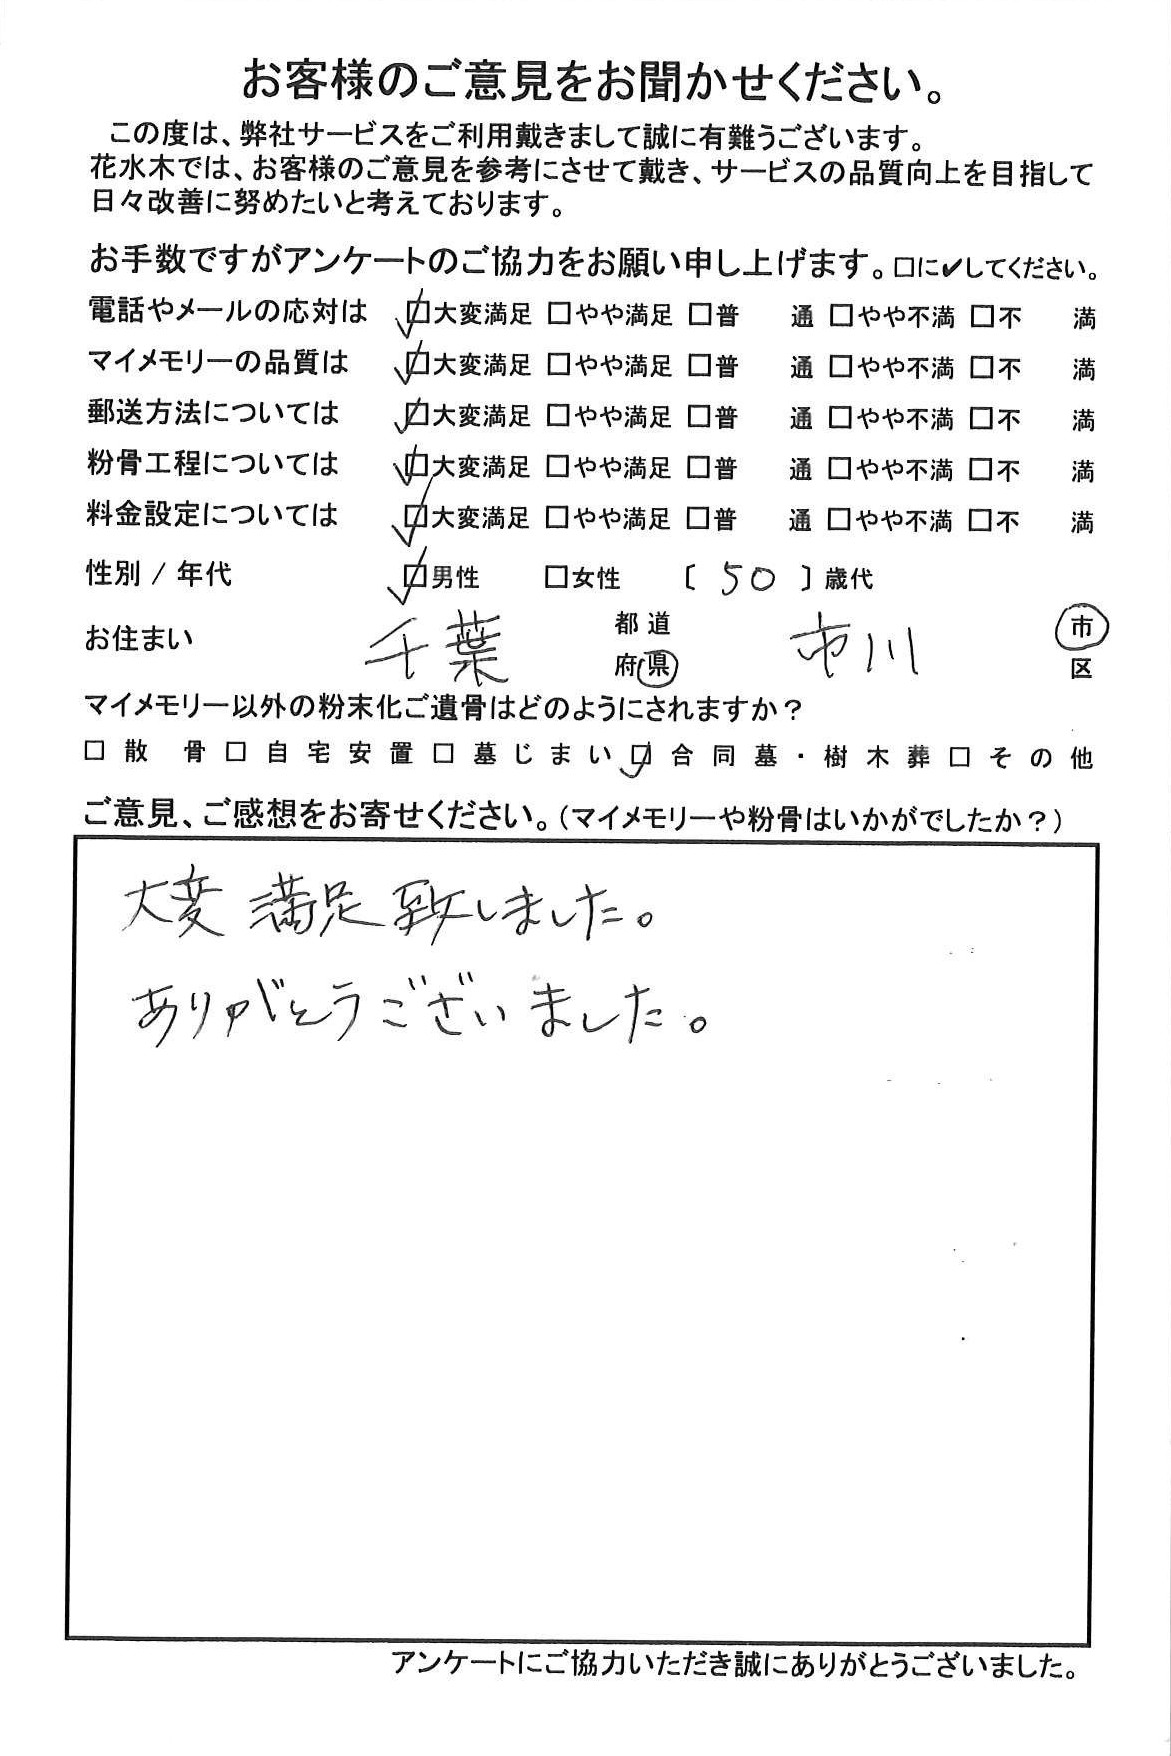 お客様のご意見をお聞かせください。
この度は、弊社サービスをご利用戴きまして誠に有難うございます。
花水木では、お客様のご意見を参考にさせて戴き、サービスの品質向上を目指して
日々改善に努めたいと考えております。
お手数ですがアンケートのご協力をお願い申し上げます。□に✔してください。
電話やメールの応対は ☑大変満足 □やや満足 □普 通 □やや不満 □不 満
マイメモリーの品質は ☑大変満足 □やや満足 □普 通 □やや不満 □不 満
郵送方法については ☑大変満足 □やや満足 □普 通 □やや不満 □不 満
粉骨工程については ☑大変満足 □やや満足 □普 通 □やや不満 □不 満
料金設定については ☑大変満足 □やや満足 □普 通 □やや不満 □不 満
性別 / 年代 ☑男性 □女性 〔 50 〕歳代
お住まい 千葉 都道府県 市川 市区
マイメモリー以外の粉末化ご遺骨はどのようにされますか？
□散 骨□自宅安置□墓じまい☑合同墓・樹木葬□その他
ご意見、ご感想をお寄せください。（マイメモリーや粉骨はいかがでしたか？）
大変満足致しました。
ありがとうございました。
アンケートにご協力いただき誠にありがとうございました。